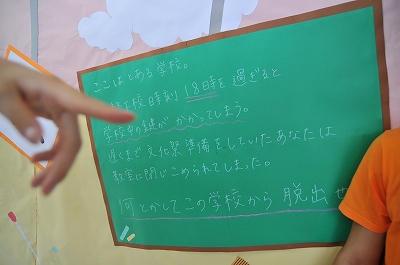 ここはとある学校。
校時刻 18時を過ぎると
学校中の鍵が かかってしまう。
遅くまで 文化祭準備をしていたあなたは
教室に閉じこめられてしまった。
何とかしてこの学校から 脱出せ